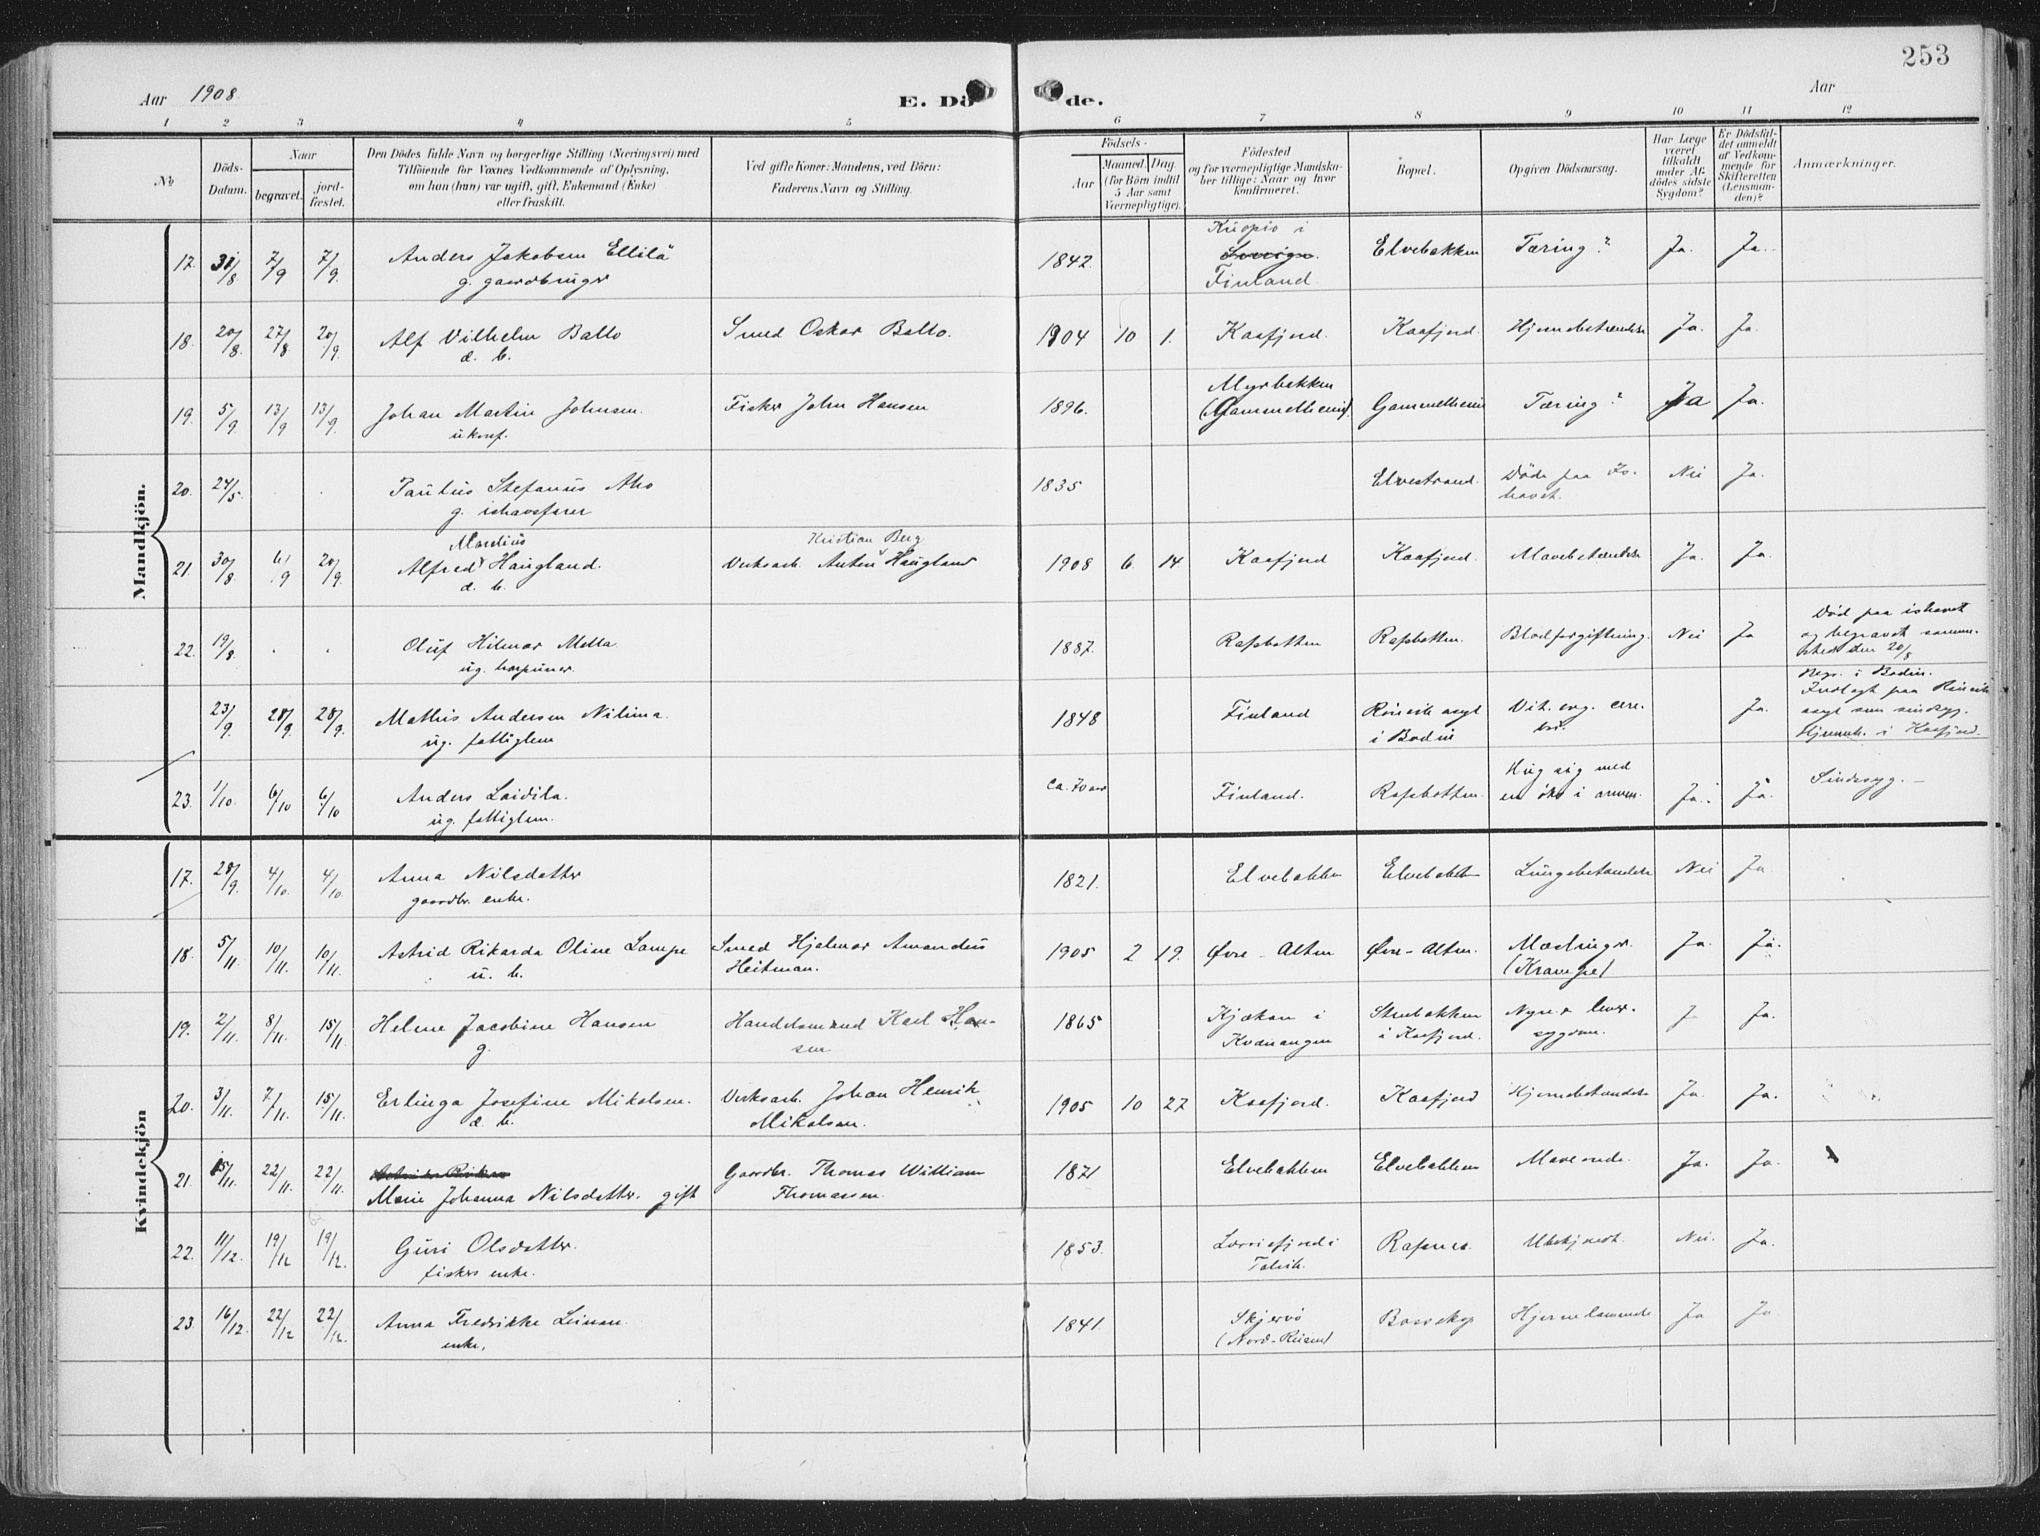 253
Aar 1908.
E. Dö de.
Aar
1 2 3 4 5 6 7 8 9 10 11 12
№
Döds-Datum.
Naar
begravet.
jord-fæstet.
Den Dödes fulde Navn og borgerlige Stilling (Næringsvei) med
Tilföiende for Voxnes Vedkommende af Oplysning,
om han (hun) var ugift, gift, Enkemand (Enke)
eller fraskilt.
Ved gifte Koner: Mandens, ved Börn:
Faderens Navn og Stilling.
Födsels-
Aar
Maaned. Dag.
(for Börn indtil
5 Aar samt
Værnepligtige).
Födested
og for værnepligtige Mandska-
ber tillige: Naar og hvor
konfirmeret.
Bopæl.
Opgiven Dödsaarsag.
Har Læge
været
tilkaldt
under Af-
dödes sidste
Sygdom?
Er Dödsfal-
det anmeldt
af Vedkom-
mende for
Skifteretten
(Lensman-
den)?
Anmærkninger.
Mandkjön.
17. 31/8 7/9 7/9 Anders Jakobsen Ellilä 1842. Kuopio i Finland Elvebakken Tæring? Ja. Ja.
g. gaardbruger
18. 20/8 27/8 20/9 Alf Vilhelm Balto Smed Oskar Balto. 1904 10 1. Kaafjord. Kaafjord. Hjernebetændelse Ja. Ja.
d. b.
19. 5/9 13/9 13/9 Johan Martin Johnsen. Fisker John Hansen 1896. Myrbakken (Gammelheim) Gammelheim Tæring? Ja Ja.
ukonf.
20. 24/5 Paulus Stefanus Aho 1835 Elvestrand. Døde paa Is-
havet. Nei Ja.
g. ishavsfarer
21. 30/8 6/9 20/9 Alfred Mardius Haugland. Verksarb. Anton Kristian Berg Haugland 1908 6. 14 Kaafjord Kaafjord. Mavebetændelse Ja. Ja.
d. b.
22. 19/8. Oluf Hilmar Motta 1887. Rafsbotten Rafsbotten. Blodforgiftning. Nei Ja Død paa ishavet
og begravet samme-
steds den 20/8
ug. harpuner.
23/9 28/9 28/9 Mathis Andersen Nilima. 1848 Finland Rönvik asyl
i Bodin Vit. org. cere-
bri. Ja. Begr. i Bodin.
Indlagt paa Rönvik
asyl som sindssyg.
Hjemmeh. i Kaafjord.
ug. fattiglem
23. 1/10. 6/10 6/10 Anders Laidila. ca. 70 aar Finland. Rafsbotten. Hug sig med
en öks i armen. Ja. Ja. Sindssyg. –
ug. fattiglem.
Kvindekjön
17. 28/9. 4/10. 4/10. Anna Nilsdatter 1821. Elvebakken Elvebakken Lungebetændelse Nei Ja.
gaardbr. enke.
18. 5/11. 10/11. 10/11. Astrid Rikarda Oline Lampe Smed Hjalmar Amandus
Heitman. 1905 2 19. Øvre-Alten Øvre-Alten. Mæslinger.
(Krampe) Ja. Ja.
u. b.
19. 2/11. 8/11. 15/11. Helene Jacobine Hansen Handelsmand Karl Han-
sen 1865 Kjækan i
Kvænangen Stenbakken
i Kaafjord. Nyre & lever-
sygdom. J Ja.
g.
20. 3/11. 7/11. 15/11. Erlinga Josefine Mikalsen. Verksarb. Johan Henrik
Mikalsen. 1905 10 27 Kaafjord. Kaafjord Hjernebetændelse Ja. Ja.
d. b.
21. 15/11. 22/11. 22/11. Marie Johanna Nilsdatter. gift Gaardbr. Thomas William
Thomassen. 1871 Elvebakken Elvebakken Maveonde. Ja. Ja.
22. 11/12. 19/12 19/12. Guri Olsdatter. 1853. Talvik. Rafsnes. Ubekjendt. Nei. Ja.
fiskers enke.
23. 16/12. 22/12 22/12. Anna Fredrikke Leinan. 1841. Skjervö
(Nord-Reisen) Bossekop Hjernelammelse Ja Ja
enke.